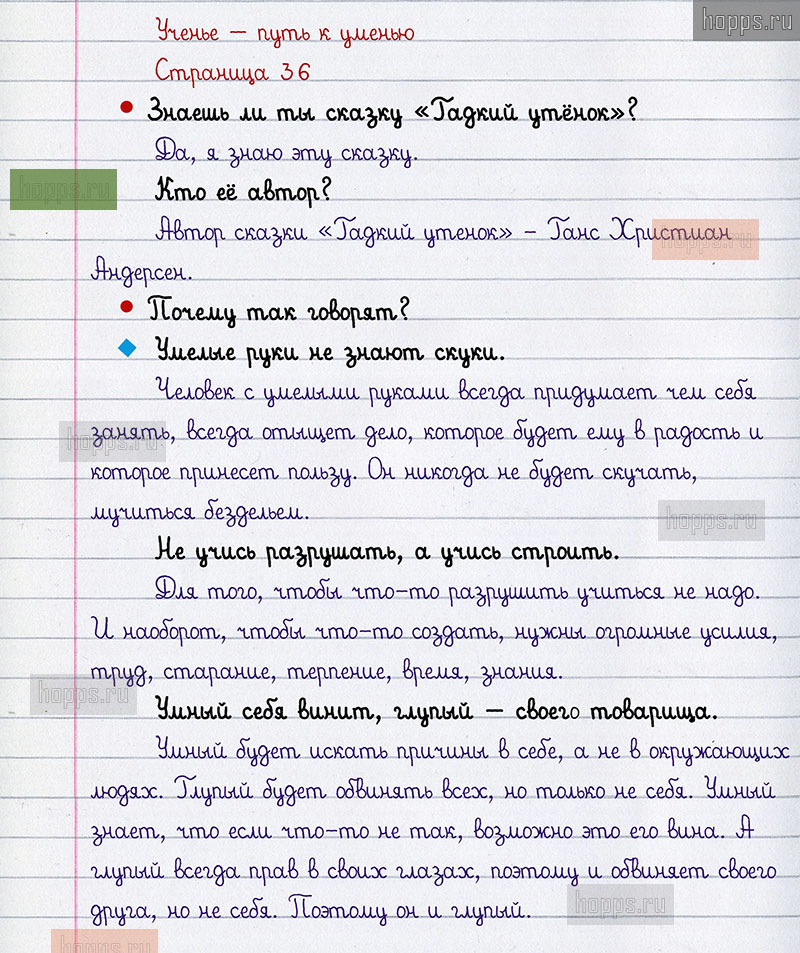 hopps.ru
Ученье — путь к уменью
Страница 36
• Знаешь ли ты сказку «Гадкий утёнок»?
Да, я знаю эту сказку.
hopps.ru
Кто её автор?
Автор сказки «Гадкий утенок» – Ганс Христиан
hopps.ru
Андерсен.
• Почему так говорят?
Умелые руки не знают скуки.
Человек с умелыми руками всегда придумает чем себя
занять, всегда отыщет дело, которое будет ему в радость и
hopps.ru
которое принесет пользу. Он никогда не будет скучать,
мучиться бездельем.
hopps.ru
Не учись разрушать, а учись строить.
Для того, чтобы что-то разрушить учиться не надо.
И наоборот, чтобы что-то создать, нужны огромные усилия,
труд, старание, терпение, время, знания.
hopps.ru
Умный себя винит, глупый — своего товарища.
Умный будет искать причины в себе, а не в окружающих
людях. Глупый будет обвинять всех, но только не себя. Умный
знает, что если что-то не так, возможно это его вина. А
глупый всегда прав в своих глазах, поэтому и обвиняет своего
друга, но не себя. Поэтому он и глупый.
hopps.ru
hopps.ru